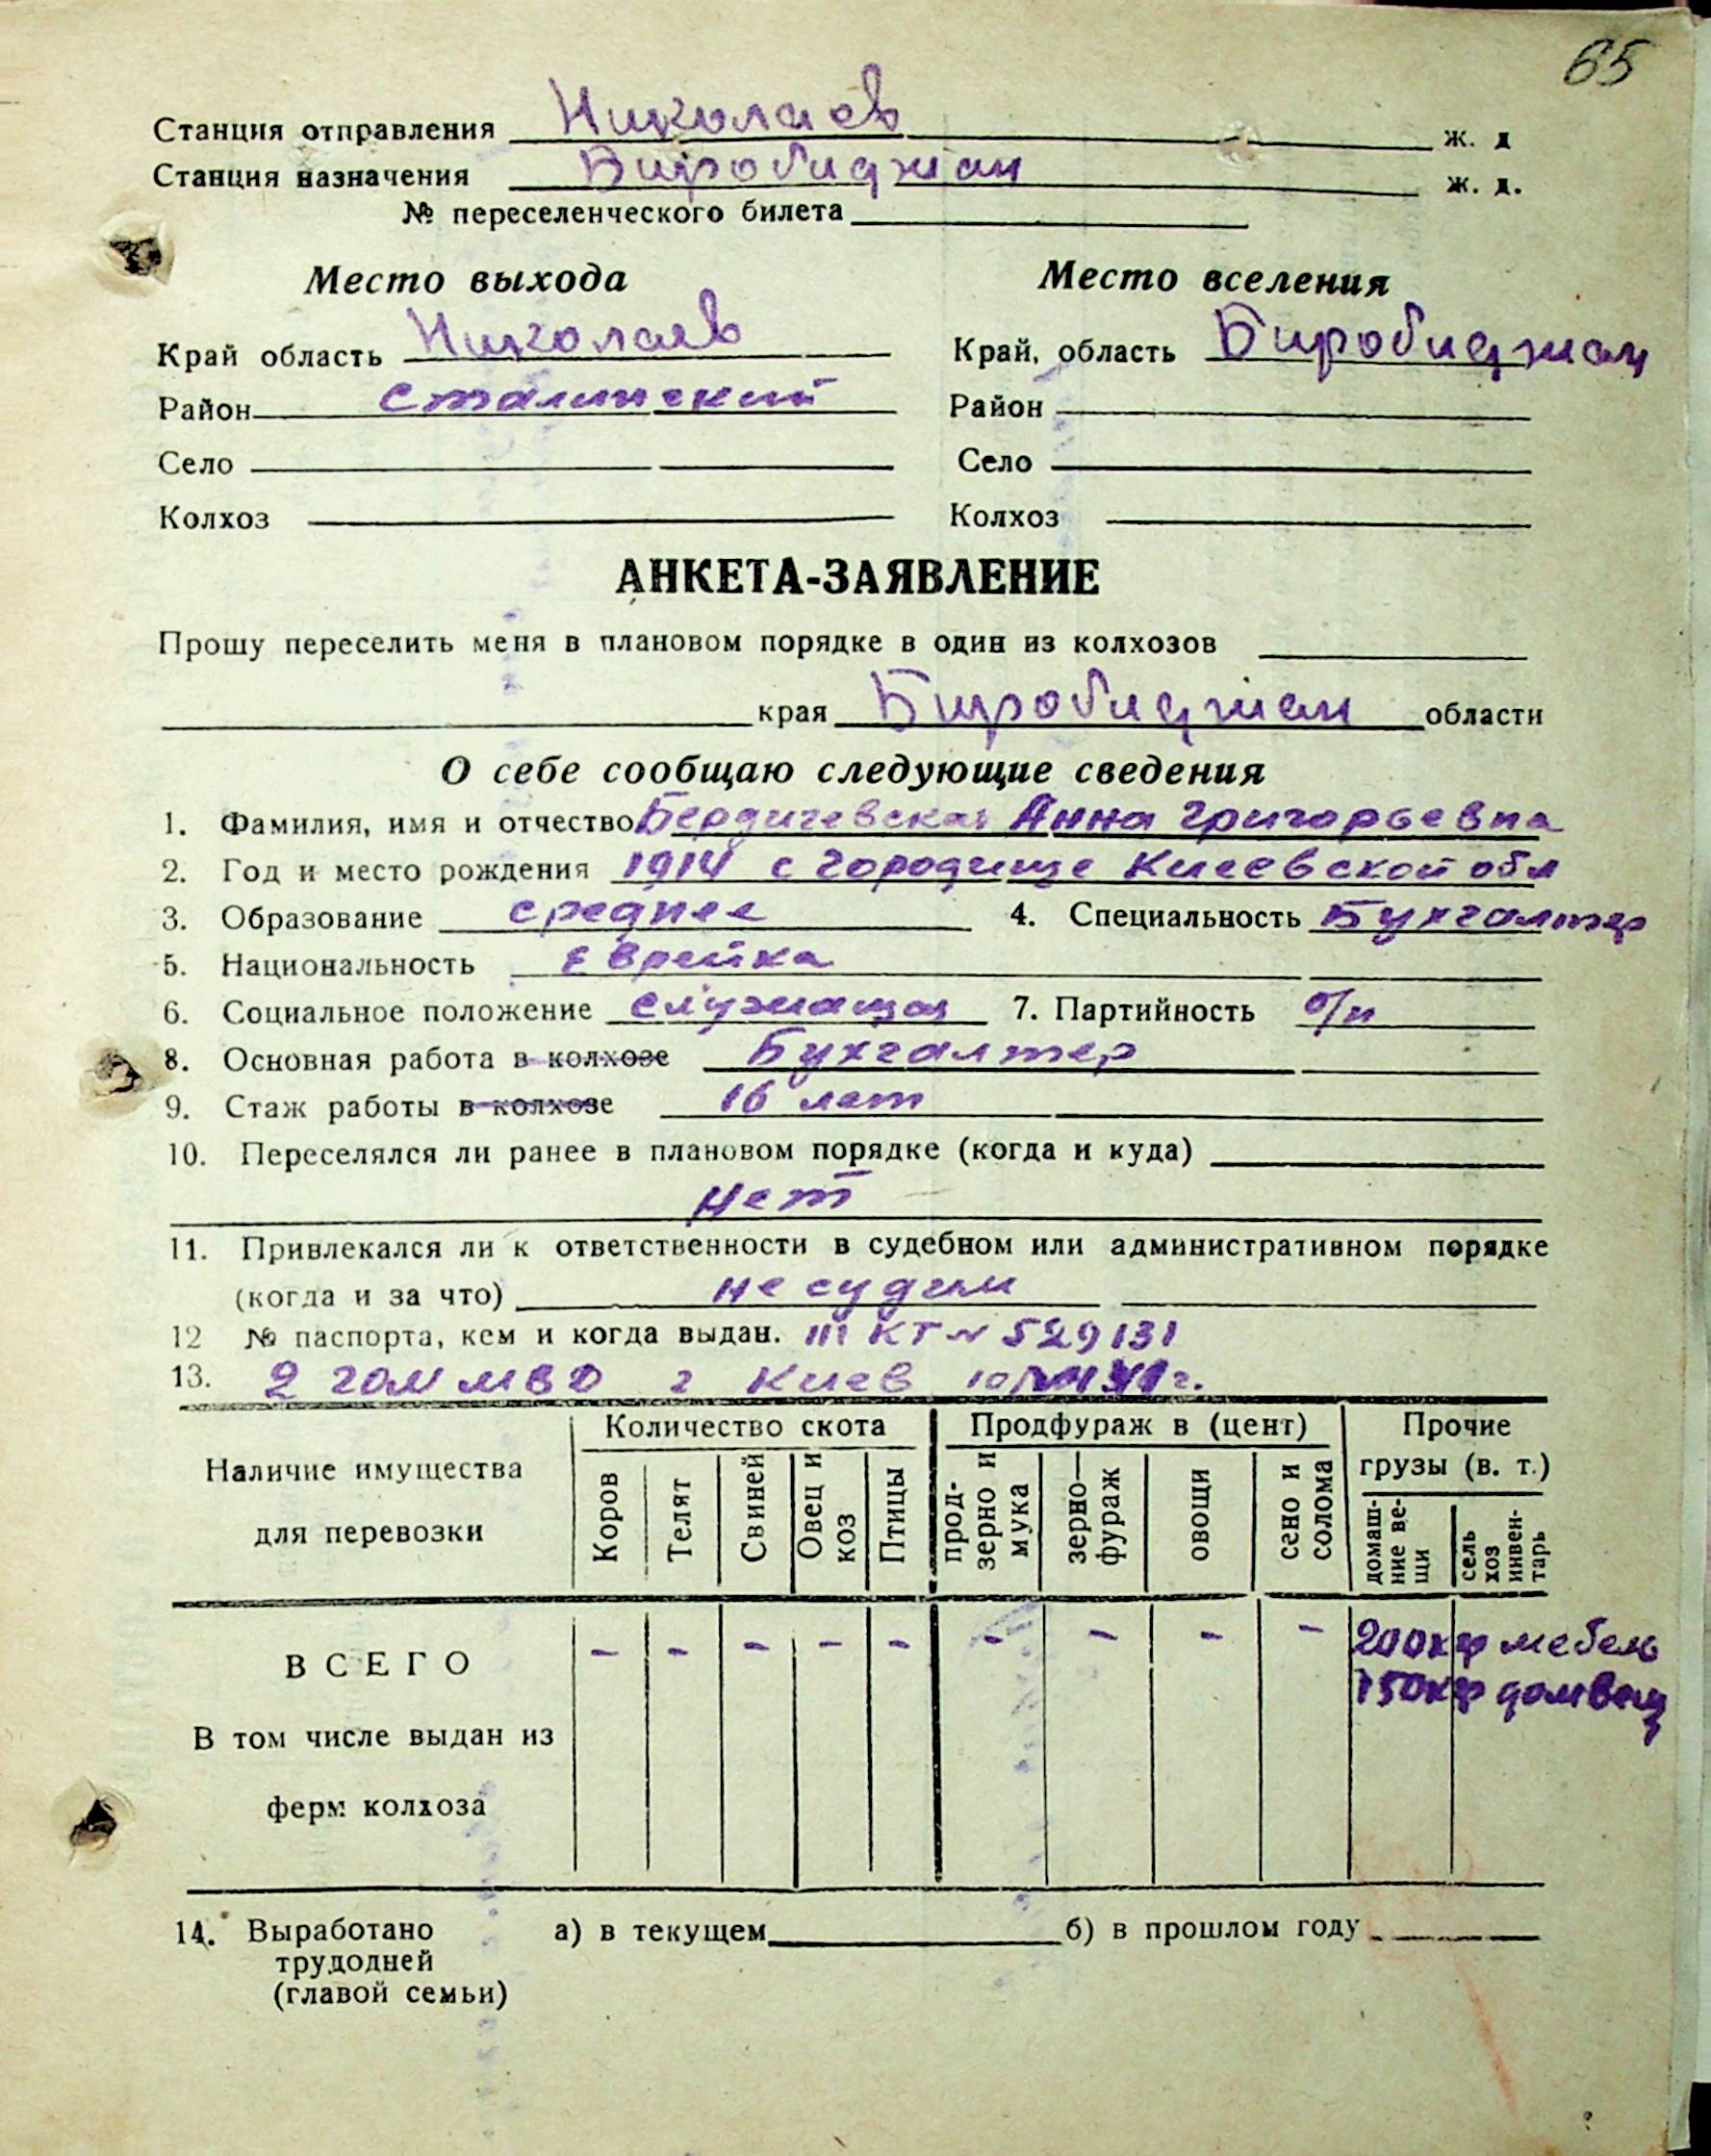 65
Станция отправления Николаев ж. д
Станция назначения Биробиджан ж. д.
№ переселенческого билета
Место выхода Место вселения
Край область Николаев Край, область Биробиджан
Район Сталинский Район
Село Село
Колхоз Колхоз
АНКЕТА-ЗАЯВЛЕНИЕ
Прошу переселить меня в плановом порядке в один из колхозов
края Биробиджан области
О себе сообщаю следующие сведения
1. Фамилия, имя и отчество Бердичевская Анна Григорьевна
2. Год и место рождения 1914 с Городище Киевской обл
3. Образование среднее 4. Специальность Бухгалтер
5. Национальность Еврейка
6. Социальное положение служащая 7. Партийность б/п
8. Основная работа в колхозе Бухгалтер
9. Стаж работы в колхозе 16 лет
10. Переселялся ли ранее в плановом порядке (когда и куда)
нет
11. Привлекался ли к ответственности в судебном или административном порядке
(когда и за что) не судим
12 № паспорта, кем и когда выдан. III КТ № 529131
13. 2 гом МВД г Киев
Наличие имущества для перевозки
Количество скота Продфураж в (цент) Прочие грузы (в. т.)
Коров Телят Свиней Овец и коз Птицы прод-зерно и мука зерно—фураж овощи сено и солома домаш-ние ве-щи сель хоз инвен-тарь
ВСЕГО - - - - - - - - - 200кг мебель
150кг домвещ
В том числе выдан из
ферм колхоза
14. Выработано а) в текущем б) в прошлом году
трудодней
(главой семьи)